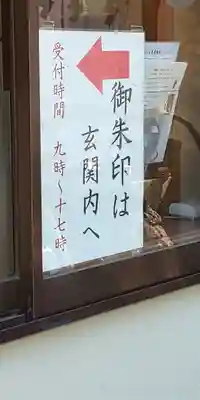 御朱印は
玄関内へ
受付時間 九時~十七時